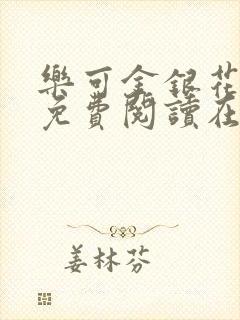 樂可金銀花
免費閱讀在
姜林芬